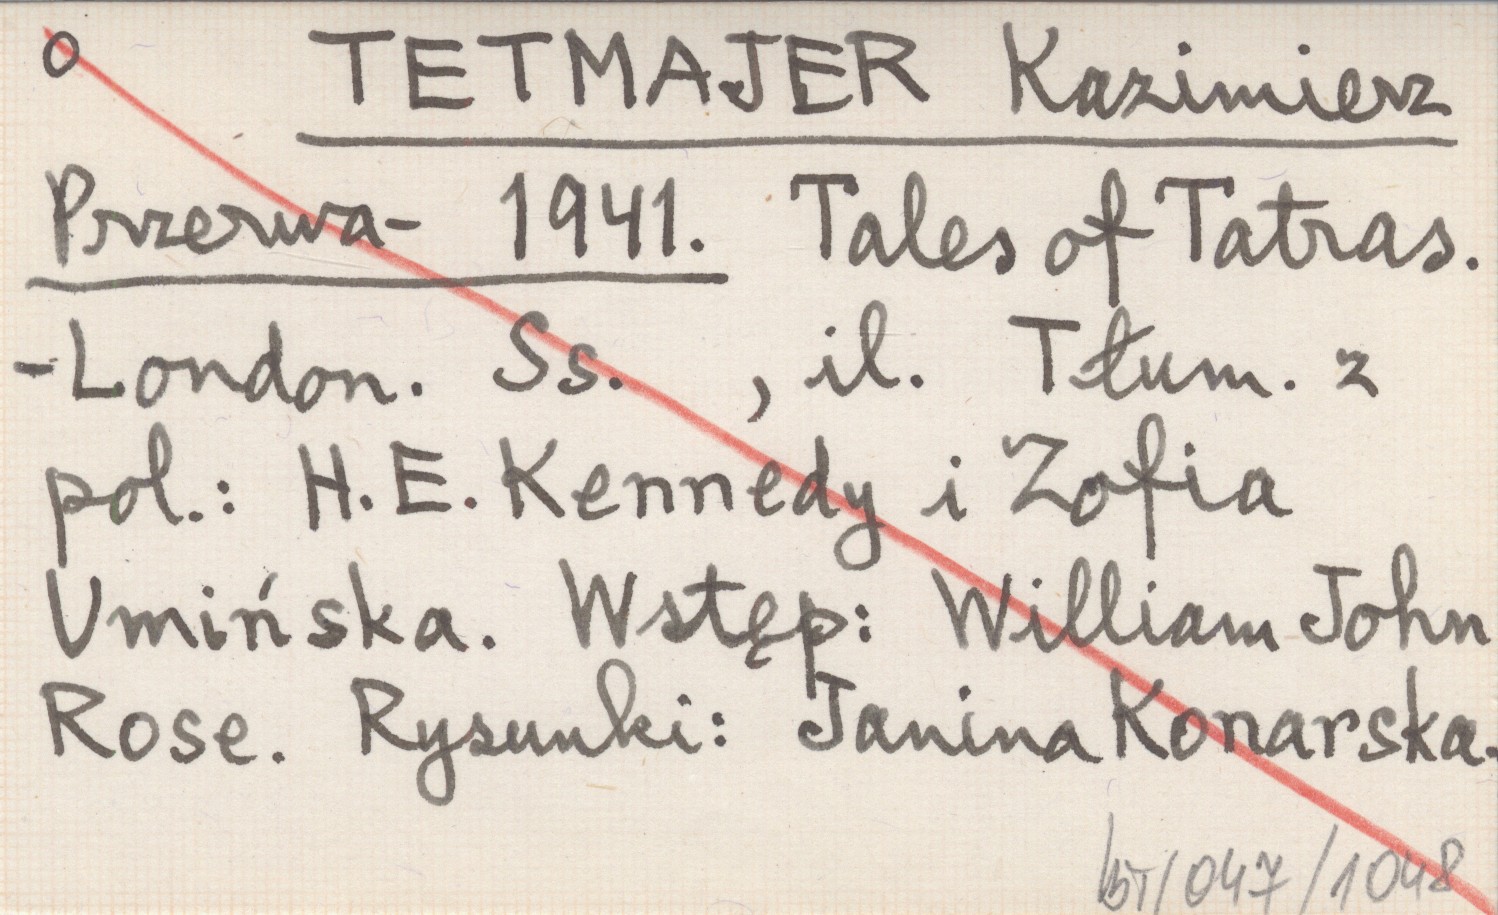 o TETMAJER Kazimierz
Przerwa- 1941. Tales of Tatras.
-London. Ss. , il. Tłum. z
pol.: H.E. Kennedy i Zofia
Umińska. Wstęp: William John
Rose. Rysunki: Janina Konarska.
/047/1048